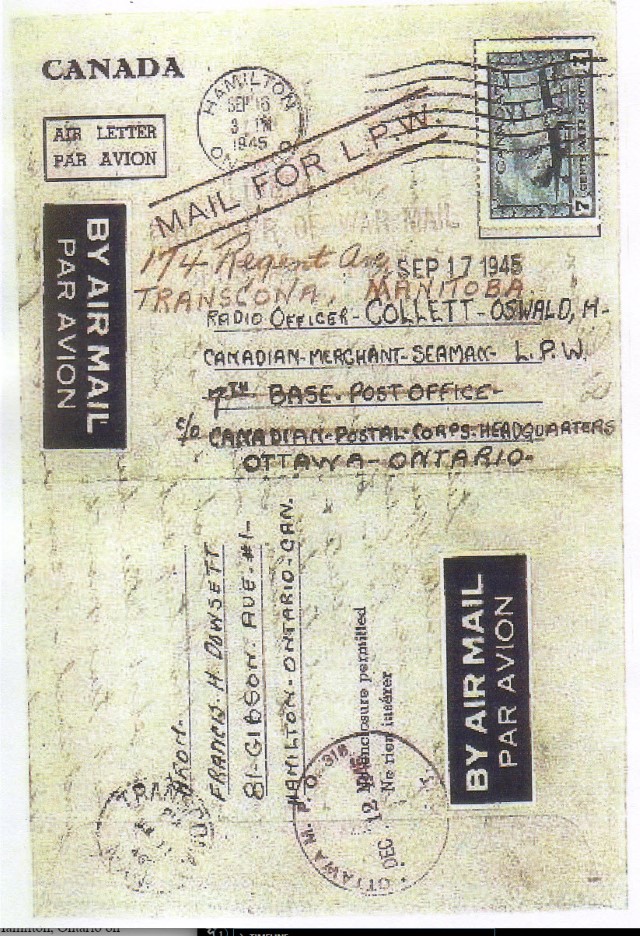 CANADA
AIR LETTER
PAR AVION
HAMILTON
SEP 16
3 PM
1945
MAIL FOR L.P.W.
OF WAR MAIL
CANADA
7 CENTS AIR CENTS 7
BY AIR MAIL
PAR AVION
174 Regent Ave
SEP 17 1945
TRANSCONA, MANITOBA.
RADIO OFFICER - COLLETT - OSWALD, H-
CANADIAN-MERCHANT-SEAMAN- L.P.W.
7TH BASE. POST OFFICE-
c/o CANADIAN-POSTAL-CORPS-HEADQUARTERS
OTTAWA - ONTARIO-
FROM-
FRANCIS. H. DOWSETT
81-GIBSON. AVE. #1-
HAMILTON-ONTARIO-CAN.
enclosure permitted
Ne rien insérer
BY AIR MAIL
PAR AVION
TRANSCONA
OTTAWA M.P.O. 318
DEC 12
Hamilton, Ontario on